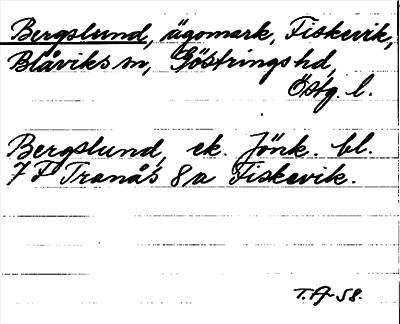 Bergslund, ägomark, Fiskevik,
Blåviks sn, Göstrings hd,
Östg. l.
Bergslund, ek. Jönk. bl.
7 F Tranås 8a Fiskevik.
T.A-58.